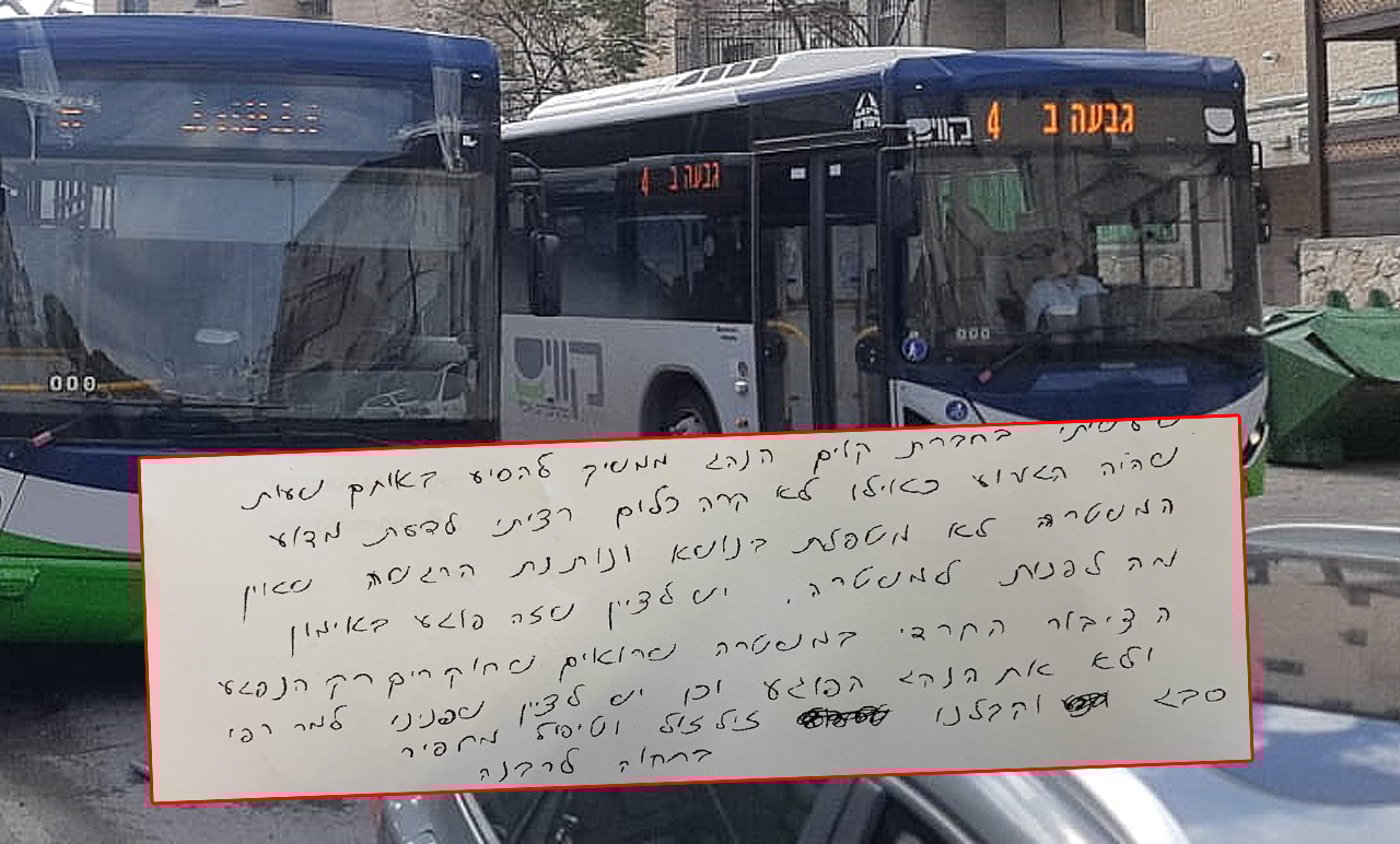 קווים 4 גבעה ב
4 גבעה ב
קווים
000
000
שעשיתי בחברת קוים הנהג ממשיך להסיע באותם שעות
שהיה הארוע כאילו לא קרה כלום רציתי לדעת מדוע
המשטרה לא מטפלת בנושא ונותנת הרגשה שאין
מה לפנות למשטרה. יש לציין שזה פוגע באימון
הציבור החרדי במשטרה שרואים שחוקרים רק הנפגע
ולא את הנהג הפוגע וכן יש לציין שפניני למר רפי
סבג וקבלנו זילזול וטיפול מחפיר
בתודה לרבנה